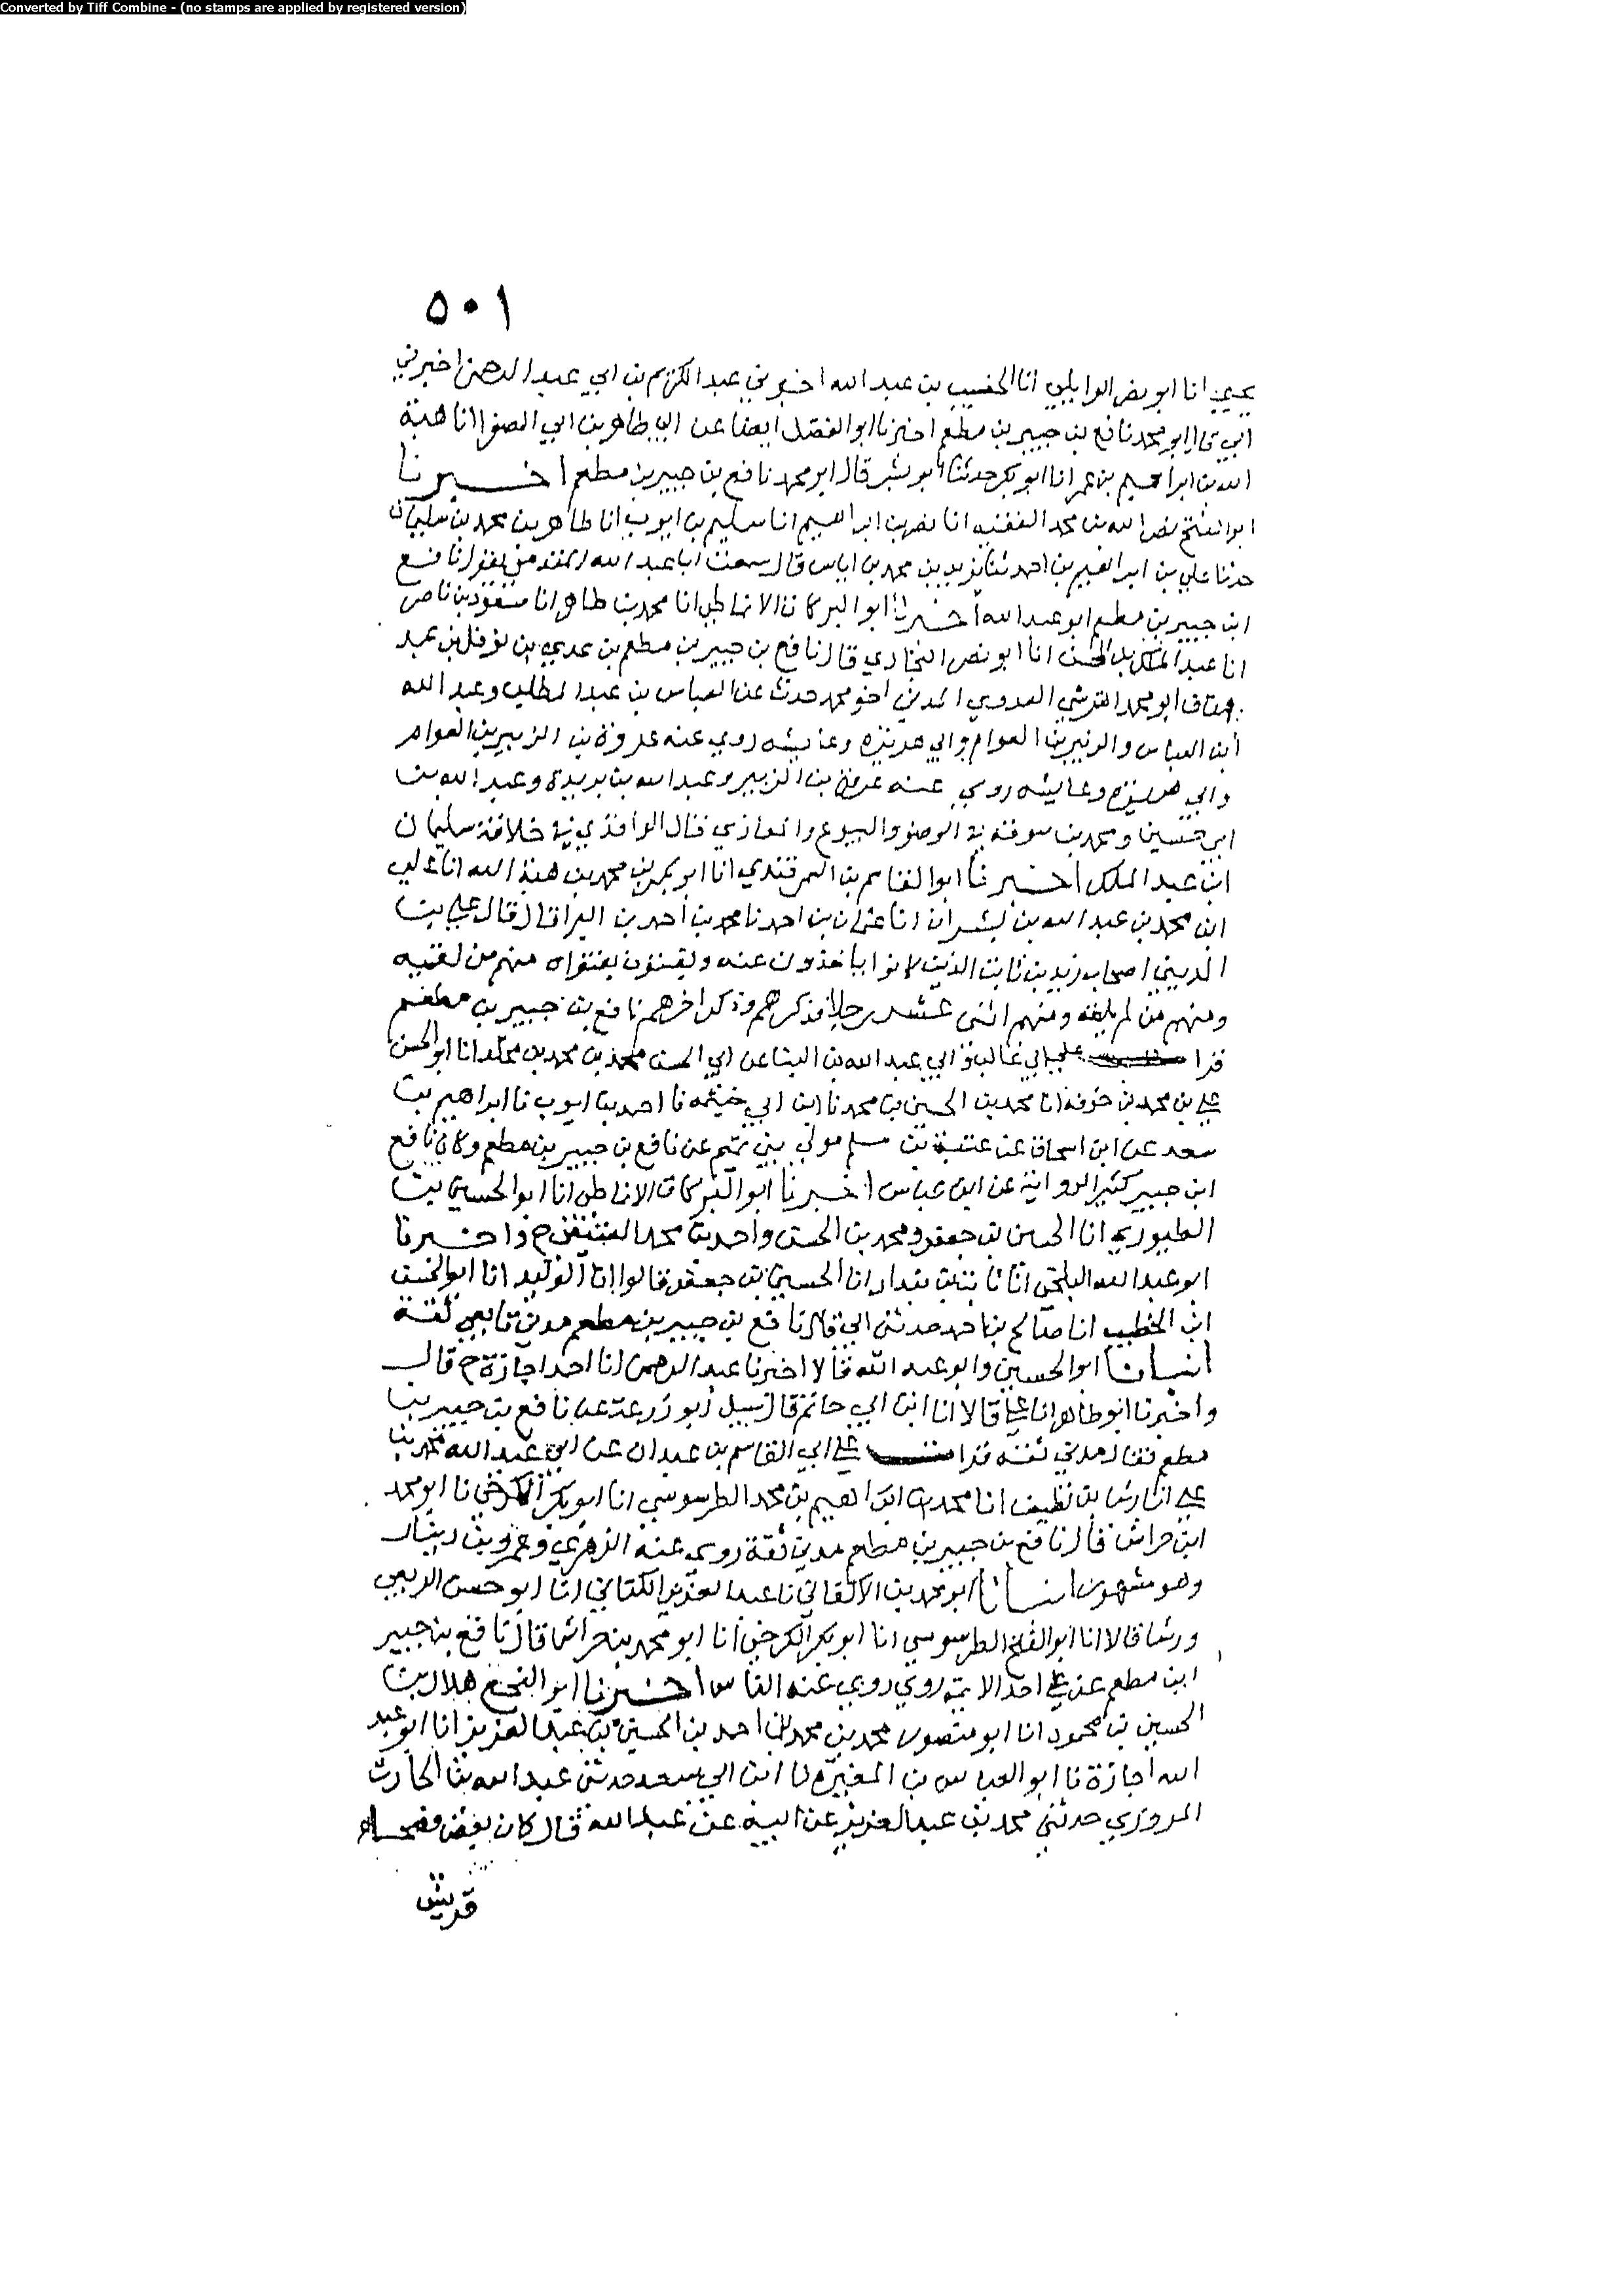 Converted by Tiff Combine - (no stamps are applied by registered version)
٥٠١
يحيى انا ابو نصر الوايلي انا الخصيب بن عبد الله اخبرني عبد الكريم بن ابي عبد الرحمن اخبرني
ابي قال ابو محمد نافع بن جبير بن مطعم اخبرنا ابو الفضل ايضا عن ابي طاهر بن ابي الصقر انا هبة
الله بن ابراهيم بن عمر انا ابو بكر حدثنا ابو بشر قال ابو محمد نافع بن جبير بن مطعم اخبرنا
ابو الفتح نصر الله بن محمد الفقيه انا نصر بن ابراهيم انا سليم بن ايوب انا طاهر بن محمد بن سليمان
حدثنا علي بن ابراهيم بن احمد ثنا يزيد بن محمد بن اياس قال سمعت ابا عبد الله المقدمي يقول نافع
ابن جبير بن مطعم ابو عبد الله اخبرنا ابو البركات الانماطي انا محمد بن طاهر انا مسعود بن ناصر
انا عبد الملك بن الحسن انا ابو نصر البخاري قال نافع بن جبير بن مطعم بن عدي بن نوفل بن عبد
مناف ابو محمد القرشي العدوي المدني اخو محمد حدث عن العباس بن عبد المطلب وعبد الله
ابن العباس والزبير بن العوام وابي هريرة وعايشه روي عنه عروة بن الزبير بن العوام
وابي هريرة وعايشه روي عنه عروة بن الزبير وعبد الله بن بريدة وعبد الله بن
ابي حسين ومحمد بن سوقه في الوضو والبيوع والمغازي قال الواقدي في خلافة سليمان
ابن عبد الملك اخبرنا ابو القاسم بن السمرقندي انا ابو بكر بن محمد بن هبة الله انا علي
ابن محمد بن عبد الله بن بشران انا عثمان بن احمد نا محمد بن احمد بن البرا قال قال علي بن
المديني اصحاب زيد بن ثابت الذين كانوا ياخذون عنه ويفتون بفتواه منهم من لقيه
ومنهم من لم يلقه ومنهم اثنى عشر رجلا فذكرهم وذكر اخرهم نافع بن جبير بن مطعم
قرا علي ابي غالب وابي عبد الله بن البنا عن ابي الحسن محمد بن محمد بن مخلد انا ابو الحسن
علي بن محمد بن خزفه انا محمد بن الحسين بن محمد نا ابن ابي خيثمه نا احمد بن ايوب نا ابراهيم بن
سعد عن ابن اسحاق عن عتبة بن مسلم مولى بني تيم عن نافع بن جبير بن مطعم وكان نافع
ابن جبير كثير الرواية عن ابن عباس اخبرنا ابو البركات الانماطي انا ابو الحسين بن
الطيوري انا الحسين بن جعفر ومحمد بن الحسن واحمد بن محمد العتيقي ح واخبرنا
ابو عبد الله البلخي انا ثابت بن بندار انا الحسين بن جعفر قالوا انا الوليد انا ابو الحسن
ابن الخطيب انا صالح بن احمد حدثني ابي قال نافع بن جبير بن مطعم مدني تابعي ثقة
انبانا ابو الحسين وابو عبد الله قالا اخبرنا عبد الرحمن انا احمد اجازة ح قال
واخبرنا ابو طاهر انا علي قالا انا ابن ابي حاتم قال سيل ابو زرعة عن نافع بن جبير بن
مطعم فقال مدني ثقه قرا علي ابي القاسم بن عبدان عن ابي عبد الله محمد بن
علي انا رشا بن نظيف انا محمد بن ابراهيم بن محمد الطرسوسي انا ابو بكر الكرخي نا ابو محمد
ابن خراش قال نافع بن جبير بن مطعم مدني ثقة روي عنه الزهري وعمرو بن دينار
وهو مشهور انبانا ابو محمد بن الاكفاني نا عبد العزيز الكتاني انا ابو حسن الربعي
ورشا قالا انا ابو الفتح الطرسوسي انا ابو بكر الكرخي انا ابو محمد بن خراش قال نافع بن جبير
ابن مطعم عن علي احد الايمة روي روي عنه الناس اخبرنا ابو النجم هلال بن
الحسين بن محمود انا ابو منصور محمد بن محمد بن احمد بن الحسين بن عبد العزيز انا ابو عبد
الله اجازة نا ابو العباس بن المغيره نا ابن ابي سعد حدثني عبد الله بن الحارث
المروزي حدثني محمد بن عبد العزيز عن ابيه عن عبد الله قال كان بعض فصحاء
قريش